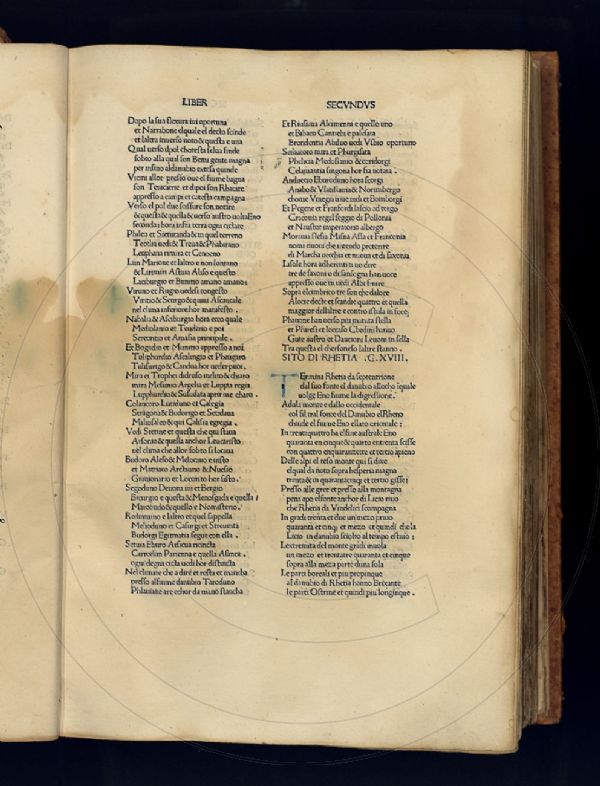 LIBER
SECVNDVS
Dopo la sua flexura ini oportuna
et Narrabone elquale el decto scinde
et laltra inuerso noto & questa e una
Qual uerso ilpol choresta lelua sinde
sobto alla qual son Bemi gente magna
per infino aldanubio extesa quinde
Vieni alloe presso oue el fiume bagna
son Teracatre et dipoi son Rhacate
appresso a campi et catesta campagna
Verso el pol due fossure son notate
& questa & quella & uerso austro uolta Eno
seconda hora infra terra ogni ciptare
Phileo et Sieturanda & in quel terreno
Teotlia uedi & Treua & Phabirano
Leuphana minura et Cenoeno
Lun Marione et laltro e non lontano
& Lirimiri Astuia Aliso e questo
Laciburgio et Bunitio amano amano
Viruno et Rugio uedesi congesto
Viritio & Scurgo & quiui Ascaucale
nel clima inferiore hor manifesto .
Nabalia & Ascaburgio hora ecco quale
Mediolanio et Teuderio e poi
Sereontio et Amasia principale .
Et Bogadio et Munitio appresso a noi
Tuliphurdio Ascalingio et Pheugaro
Tulisurgio & Candua hor ueder puoi
Mira et Trophei didruso inclito & charo
mira Mesuino Argelia et Luppia regia
Lupphurdio & Susudata aprirme charo .
Colancoro Lutiduno et Calegia
Stragona & Budorgo et Setidaua
Maliscaleo & qui Calisia egregia .
Vedi Stetine et questa che qui staua
Arsonio & quella anchor Leucaristo
nel clima che allor sobto si locaua
Budoro Aleso & Melocauo e uisto
et Matriaco Archtuno & Nuesio
Grauionario et Locorito hor sisto .
Segodano Deuona iui et Bergio
Bicurgio e questa & Menosgada e quella
Maroudo & quello e Nomisterio .
Redintuino et laltro et quel sappella
Melioduno et Casurgi et Streuinta
Budorgi Egitmatia segue con ella .
Setuia Eburo Arsicua ricincta
Carrodum Parienna e quella Asanca .
ogni degna cipta uedi hor distincta
Nel climate che a dire et resta et mancha
presso al fiume danubio Tarodano
Phlauiane are echor da mano stancha
Et Riusiaua Alcimenni e quello uno
et Bibaco Cantiebi e palesata
Brondentia Abiluo uedi Vsbio oportuno
Setiuatoro mira et Phurgisata
Philecia Medoslanio & corridorgi
Celamantia singona hor sia notata .
Anduetio Eburoduno hora scorgi
Anabo & Vlatislauia & Norimbergo
chome Vratgia niue nidi et Boimborgi
Et Pegene et Franforth lascio ad tergo
Cracouia regal seggio di Pollonia
et Naustor imperatorio albergo
Morauia slesia Misina Asia et Franconia
noma nuoui che intendo preterire
di Marcha uecchia et nuoua et di saxonia
Lasale hora adherenti in uo dire
tre de saxoni o di sansogna han uoce
appresso oue in uedi Albi finire
Sopra elcimbrico tre son che dalore
Alocie decte et scandie quattro et quella
maggior dellaltre e contro istula in foce
Phauone han uerso piu mutata stella
et Phiresi et loccaso Chedini hanno
Gute austro et Dauctioni Leuoni in sella
Tra questa el chersoneso laltre stanno .
SITO DI RHETIA . C. XVIII.
TErmina Rhetia da septentrione
dal suo fonte el danubio alloco iquale
uolge Eno fiume la digressione .
Adala monte e dallo occidentale
col sil tral fonte del Danubio el Rheno
chiude el fiume Eno ellaro orientale :
In trentiquattro ha el fine australe Eno
quaranta en cinque & quarto entrenta sesse
con quattro enquarantasette et tertio apieno
Delle alpi el teso monte qui si dice
elqual da noto sopra hesperia magna
trentasei in quarantacinqi et tertio gisse
Presso alle gree et presso alla montagna
pena apo elfonte anchor di Licio riuo
che Rhetia da Vindelici scompagna
In gradi trenta et due un mezo priuo
quaranta et cinqi et mezo et quindi che la
Licio in danubio sciolto al tempo estiuo :
Lextremita del monte gradi inuola
un mezo et trentatre quaranta et cinque
sopra alla meza parte duna sola
Le parti boreali et piu propinque
al danubio di Rhetia hanno Brixante
le parti Ostrine et quindi piu longinque .